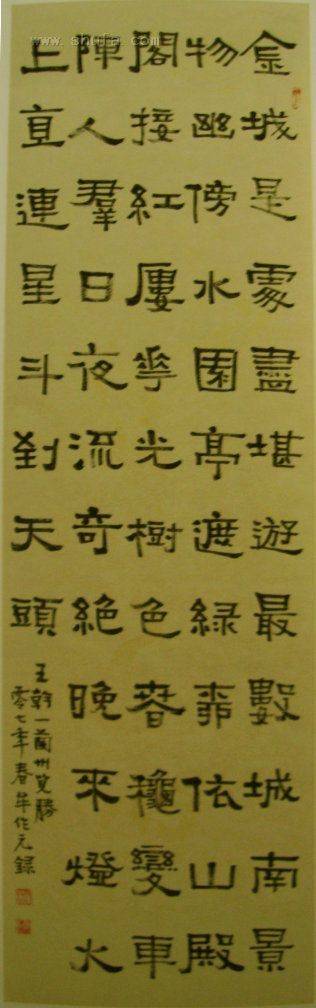 金城是處盡堪遊最數城南景
物幽傍水園亭遮綠依山殿
閣接紅廔花光樹色春龝變車
陣人羣日夜流奇絕晚來燈火
上直連星斗到天頭
王幹一蘭州覽勝
零七年春作元錄
www.shufa.com